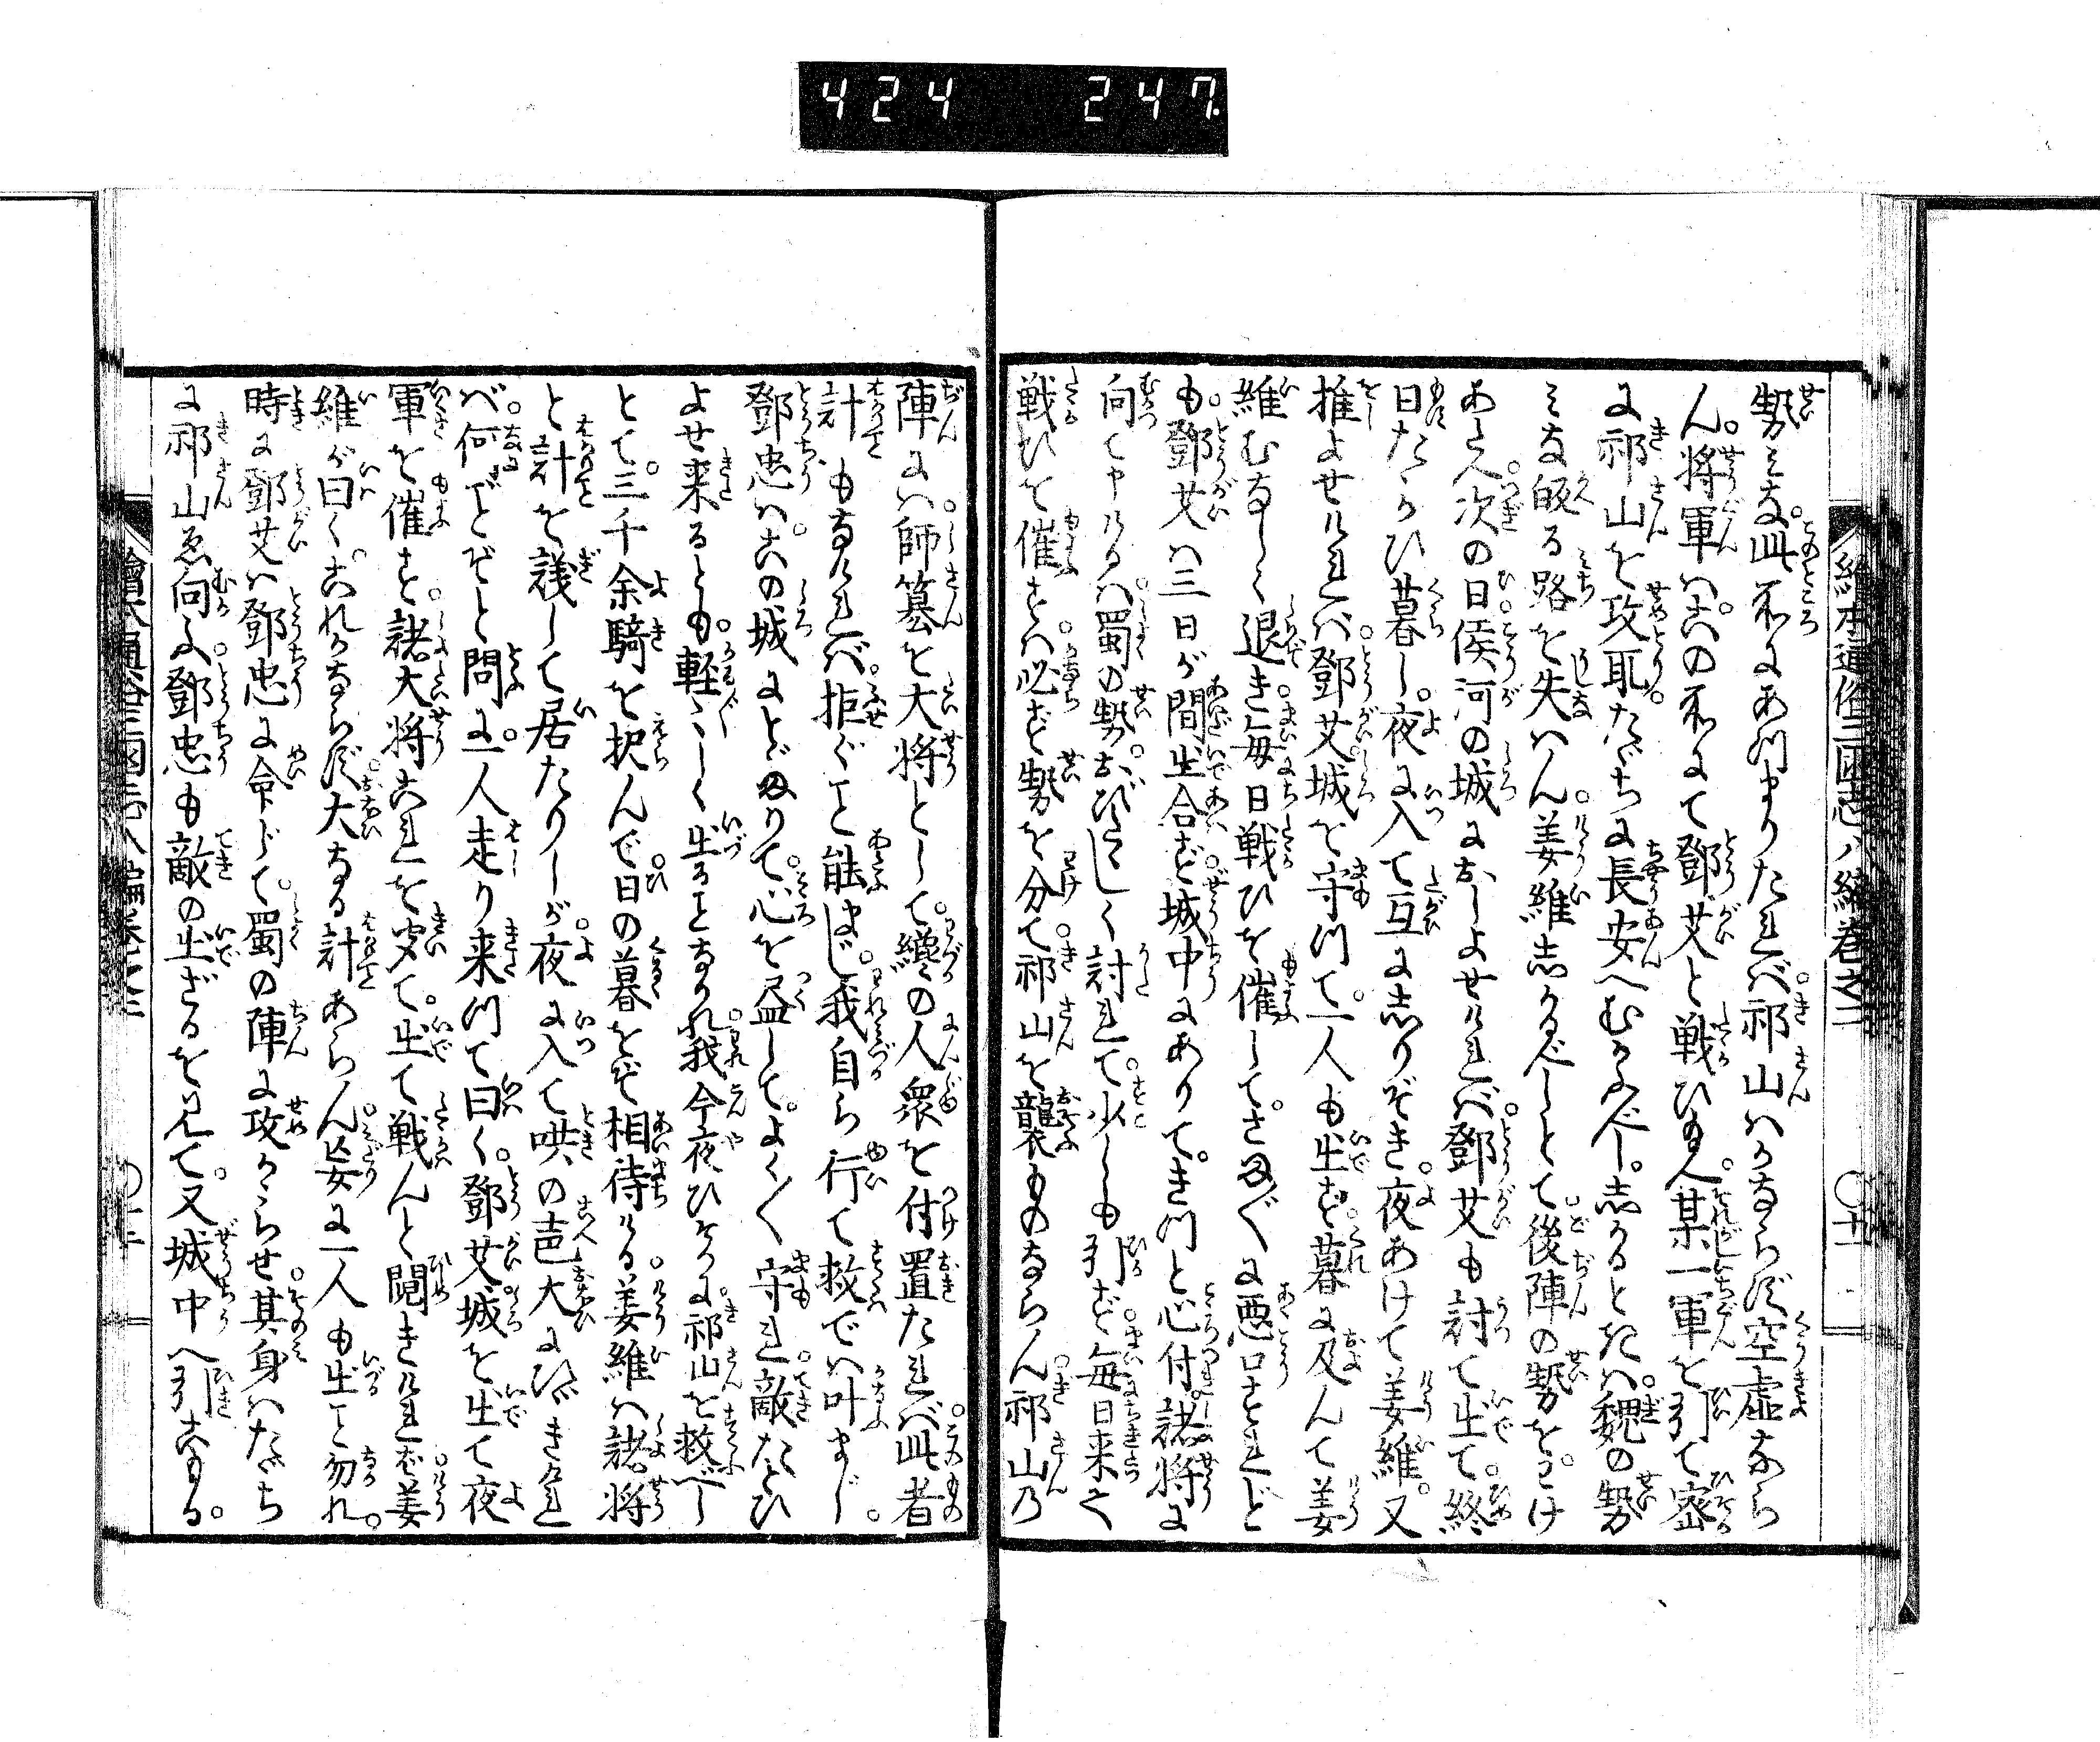 424 247
繪本通俗三國志八編巻之二
〇十二
勢ミな。此所にあつまりたれば。祁山はかならず空虚ならん
ん。将軍は。此の所にて鄧艾と戦ひ給へ。某一軍を引て密
に祁山を攻取。たゞちに長安へむかふべし。志かるときは。魏の勢
ミな皈る路を失はん。姜維志かるべしとて。後陣の勢を。わけ
あたへ。次の日侯河の城におしよせければ。鄧艾も討て出て。終
日たゝかひ暮し。夜に入て互に志りぞき。夜あけて姜維。又
推よせければ。鄧艾。城を守つて。一人も出ず。暮に及んて姜
維むなしく退き。毎日戦ひを催して。さま〴〵に悪口すれど
も。鄧艾は三日が間出合ず。城中にありて。きつと心付。諸将に
向て申けるは。蜀の勢。おびたゝしく討れて。少しも引ず。毎日来て
戦ひを催すは。必ず勢を分て。祁山を襲ものならん。祁山の
陣には。師簒を大将として。纔の人衆を付置たれば。此者
計もなければ。拒ぐこと能はじ。我自ら行て救では叶まじ。
鄧忠は。此の城にとゞまりて。心を盡して。よく〳〵守れ。敵たとひ
よせ来るとも。軽〻しく出ることなかれ。我今夜ひそかに。祁山を救べし
とて。三千余騎を択んで。日の暮をぞ相待ける。姜維は諸将
と計を議して居たりしが。夜に入て哄の声大にひゞきけれ
ば。何ごとぞと問に。一人走り来つて曰く。鄧艾。城を出て夜
軍を催すと。諸大将これを聞て。出て戦んと閧きければ。姜
維が曰く。これかならず。大なる計あらん。妄に一人も出こと勿れ。
時に鄧艾は鄧忠に命じて。蜀の陣に攻かゝらせ。其身はたゞち
に祁山ゑ向ふ。鄧忠も敵の出ざるを見て。又城中へ引こもる。
繪本通俗三國志八編巻之二
〇十二